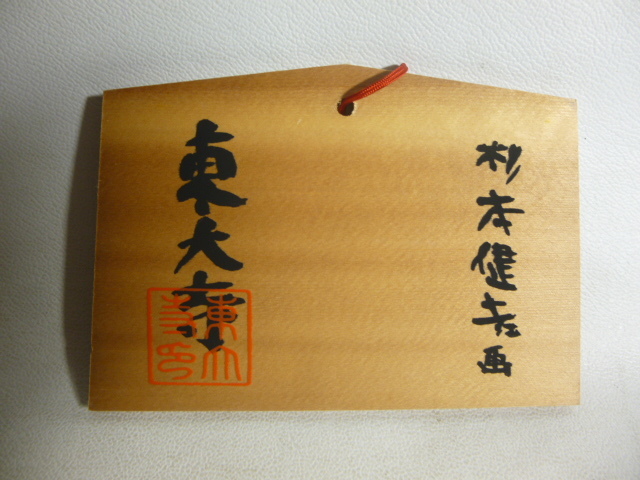 杉本健吉画
東大寺
東大寺印